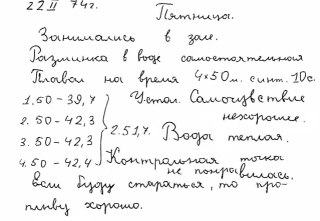 22 II 74г.
Пятница.
Занимались в зале.
Разминка в воде самостоятельная
Плавал на время 4×50м. с инт. 10с.
1.50-39,4 Устал. Самочувствие
2.50-42,3 нехорошее.
3.50-42,3 2.51,4. Вода теплая.
4.50-42,4 Контрольная точка
не понравилась.
Если буду стараться, то про-
плыву хорошо.